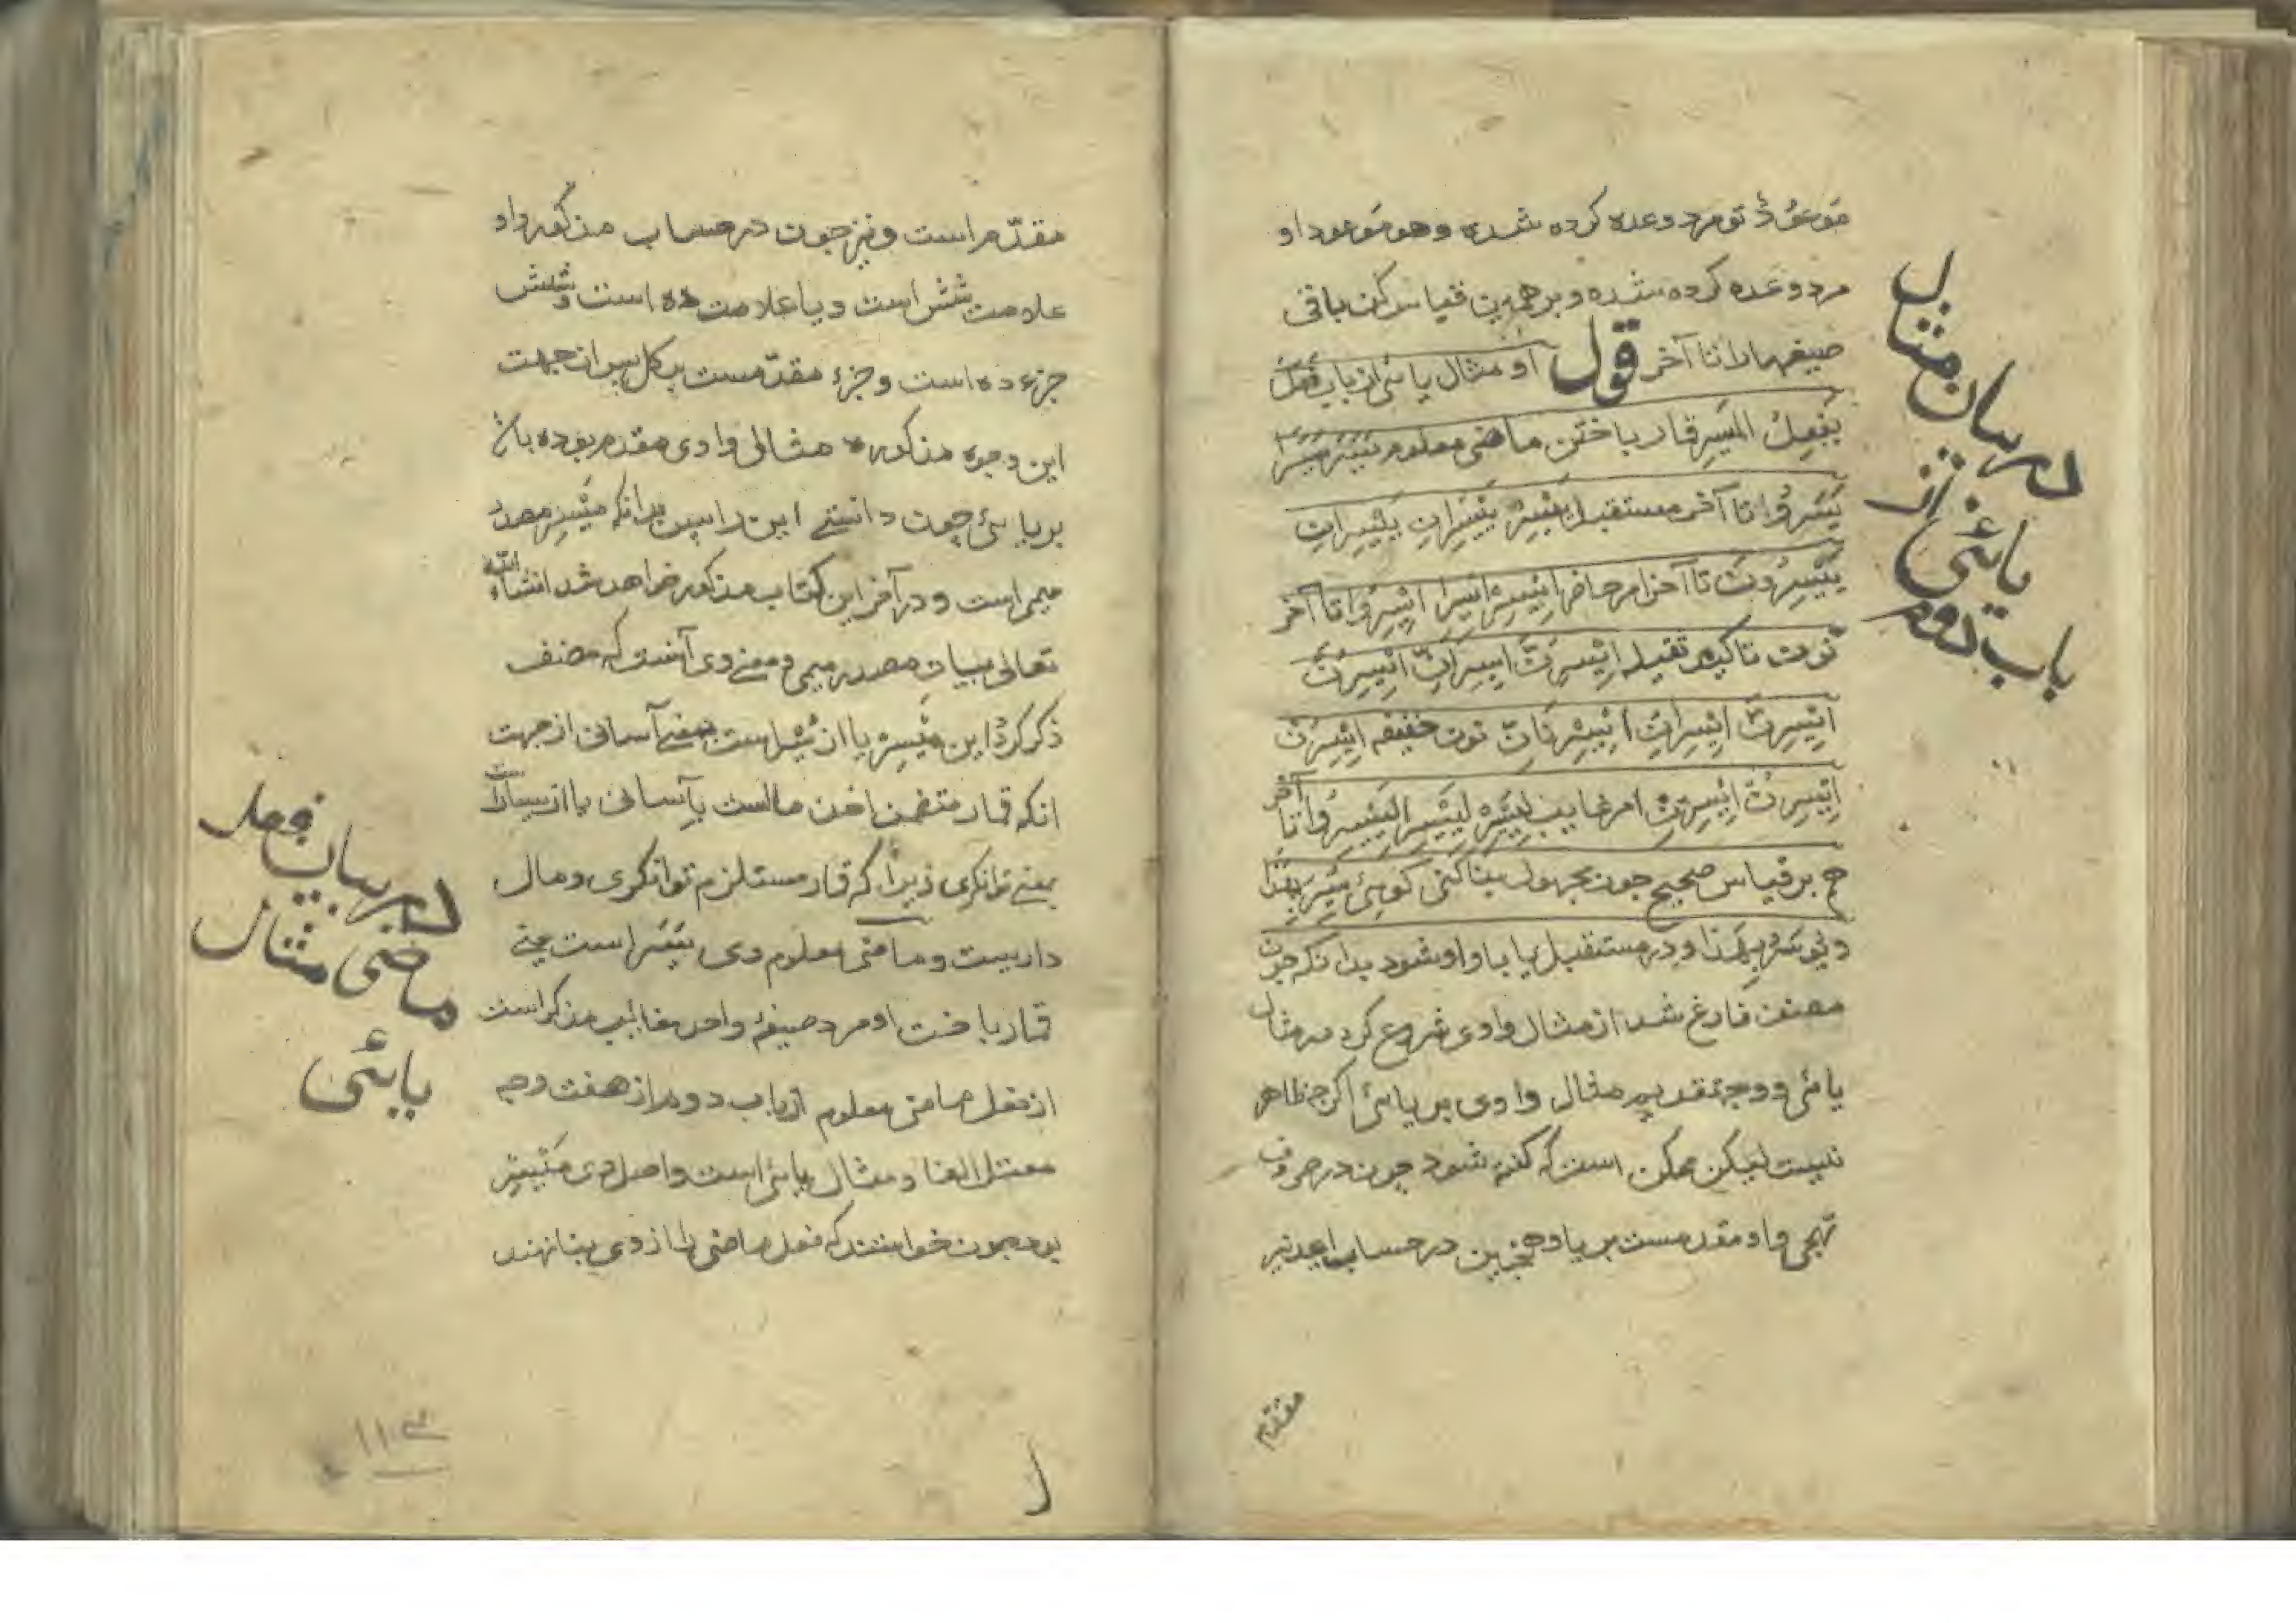 موعودٌ تو مرد وعده کرده شده وهو موعود او
مرد وعده کرده شده و برهمین قیاس کن باقی
صیغهارا تا آخر قول او مثال یائی از باب فَعَلَ
یَفْعِلُ المَیْسِر قمار باختن ماضی معلوم یَسَرَ یَسَرَا
یَسَرُوا تا آخر مستقبل یَیْسِرُ یَیْسِرَانِ یَیْسِرَانِ
یَیْسِرُونَ تا آخر امر حاضر اِیْسِرْ اِیْسِرَا اِیْسِرُوا تا آخر
نون تاکید ثقیله اِیْسِرَنَّ اِیْسِرَانِّ اِیْسِرُنَّ
اِیْسِرِنَّ اِیْسِرَانِّ اِیْسِرْنَانِّ نون خفیفه اِیْسِرَنْ
اِیْسِرُنْ اِیْسِرِنْ امر غایب لِیَیْسِرْ لِیَیْسِرَا لِیَیْسِرُوا تا آخر
هم بر قیاس صحیح چون مجهول بنا کنی کوئی یُسِرَ بِهٰذَا
ویُوسَرُ بِهٰذا و در مستقبل یا با واو شود بدانکه چون
مصنف فارغ شد از مثال واوی شروع کرد در مثال
یائی و وجه تقدیم مثال واوی بر یائی اکرچه ظاهر
نیست لیکن ممکن است که کفته شود چون در حروف
تهجی واو مقدمست بر یا وهمچنین در حساب ابجد نیز
مقدم
در بیان مثال
یائی از
باب دوم
مقدّم است و نیز چون در حساب مذکور واو
علامت شش است ویا علامت ده است و شش
جزء ده است و جزء مقدّمست بر کل پس از جهت
این وجوه مذکوره مثال واوی مقدم بوده باشد
بر یائی چون دانستے این را پس بدانکه مَیْسِر مصدر
میمی است و در آخر این کتاب مذکور خواهد شد انشاء الله
تعالی بیان مصدر میمی و معنے وی آنست که مصنف
ذکر کرد این مَیْسِر یا از یُسْر است بمعنے آسانی از جهت
انکه قمار متضمن اخذ مالست بآسانی یا از یسارست
بمعنے توانکری زیرا که قمار مستلزم توانکری و مال
داریست و ماضی معلوم وی یَسَرَ است یعنے
قمار باخت او مرد صیغهٔ واحد مغائب مذکر است
از فعل ماضی معلوم از باب دوم از هفت وجه
معتل الفا و مثال یائی است و اصل وی مَیْسِر
بود چون خواستند که فعل ماضی را از وی بنا نهند
در بیان فعل
ماضی مثال
یائی